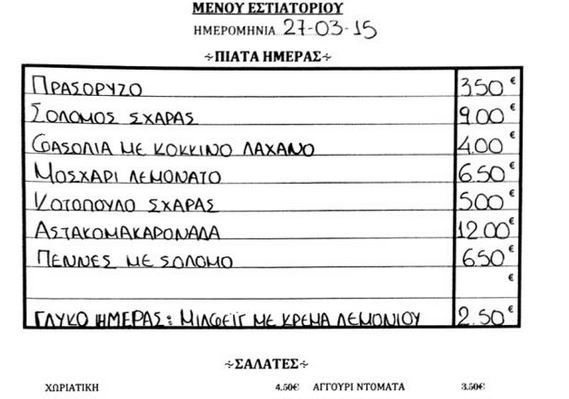 ΜΕΝΟΥ ΕΣΤΙΑΤΟΡΙΟΥ
ΗΜΕΡΟΜΗΝΙΑ 27-03-15
÷ΠΙΑΤΑ ΗΜΕΡΑΣ÷
ΠΡΑΣΟΡΥΖΟ 3.50 €
ΣΟΛΟΜΟΣ ΣΧΑΡΑΣ 9.00 €
ΦΑΣΟΛΙΑ ΜΕ ΚΟΚΚΙΝΟ ΛΑΧΑΝΟ 4.00 €
ΜΟΣΧΑΡΙ ΛΕΜΟΝΑΤΟ 6.50 €
ΚΟΤΟΠΟΥΛΟ ΣΧΑΡΑΣ 5.00 €
ΑΣΤΑΚΟΜΑΚΑΡΟΝΑΔΑ 12.00 €
ΠΕΝΝΕΣ ΜΕ ΣΟΛΟΜΟ 6.50 €
€
ΓΛΥΚΟ ΗΜΕΡΑΣ: ΜΙΛΦΕΪΓ ΜΕ ΚΡΕΜΑ ΛΕΜΟΝΙΟΥ 2.50 €
÷ΣΑΛΑΤΕΣ÷
ΧΩΡΙΑΤΙΚΗ 4.50€ ΑΓΓΟΥΡΙ ΝΤΟΜΑΤΑ 3.50€